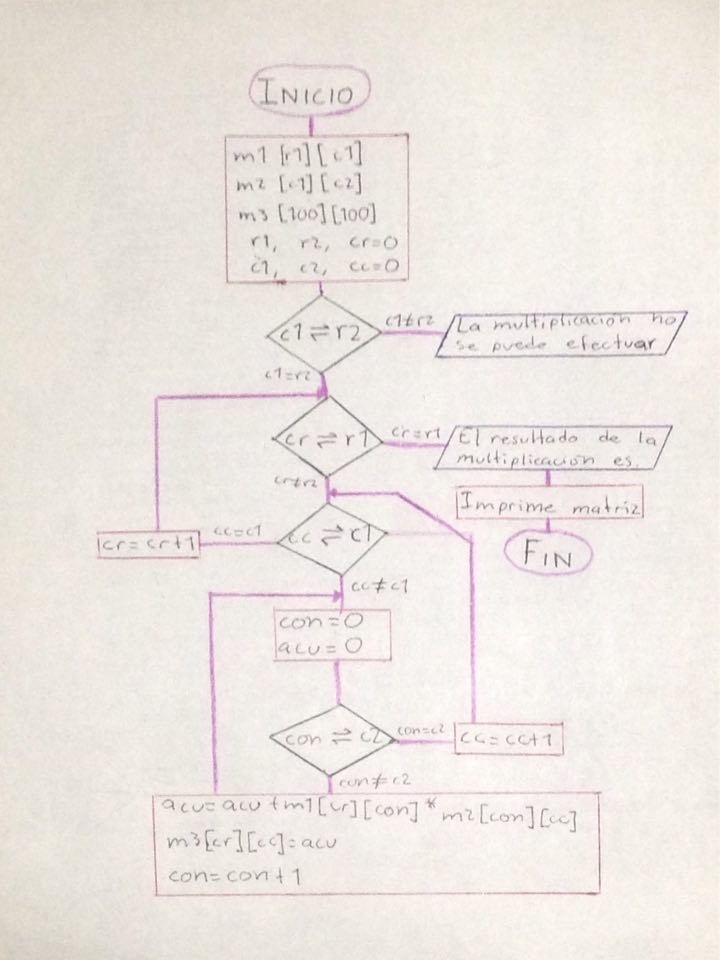 INICIO
m1 [r1][c1]
m2 [c1][c2]
m3 [100][100]
r1, r2, cr=0
c1, c2, cc=0
c1⇌r2
c1≠r2
La multiplicación no
se puede efectuar
c1=r2
cr⇌r1
cr=r1
El resultado de la
multiplicación es.
cr≠r2
Imprime matriz
FIN
cc⇌c1
cc=c1
cr=cr+1
cc≠c1
con=0
acu=0
con⇌c2
con=c2
cc=cc+1
con≠c2
acu=acu+m1[cr][con]*m2[con][cc]
m3[cr][cc]=acu
con=con+1